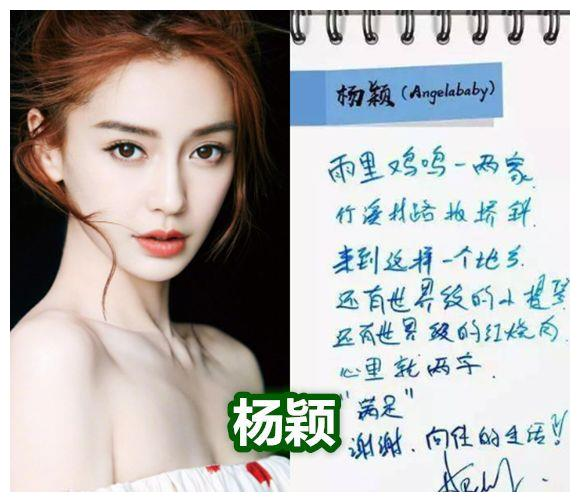 杨颖（Angelababy）
雨里鸡鸣一两家
竹溪村路板桥斜
来到这样一个地方
还有世界级的小提琴
还有世界级的红烧肉
心里就两字
"满足"
谢谢.向往的生活!!
杨颖